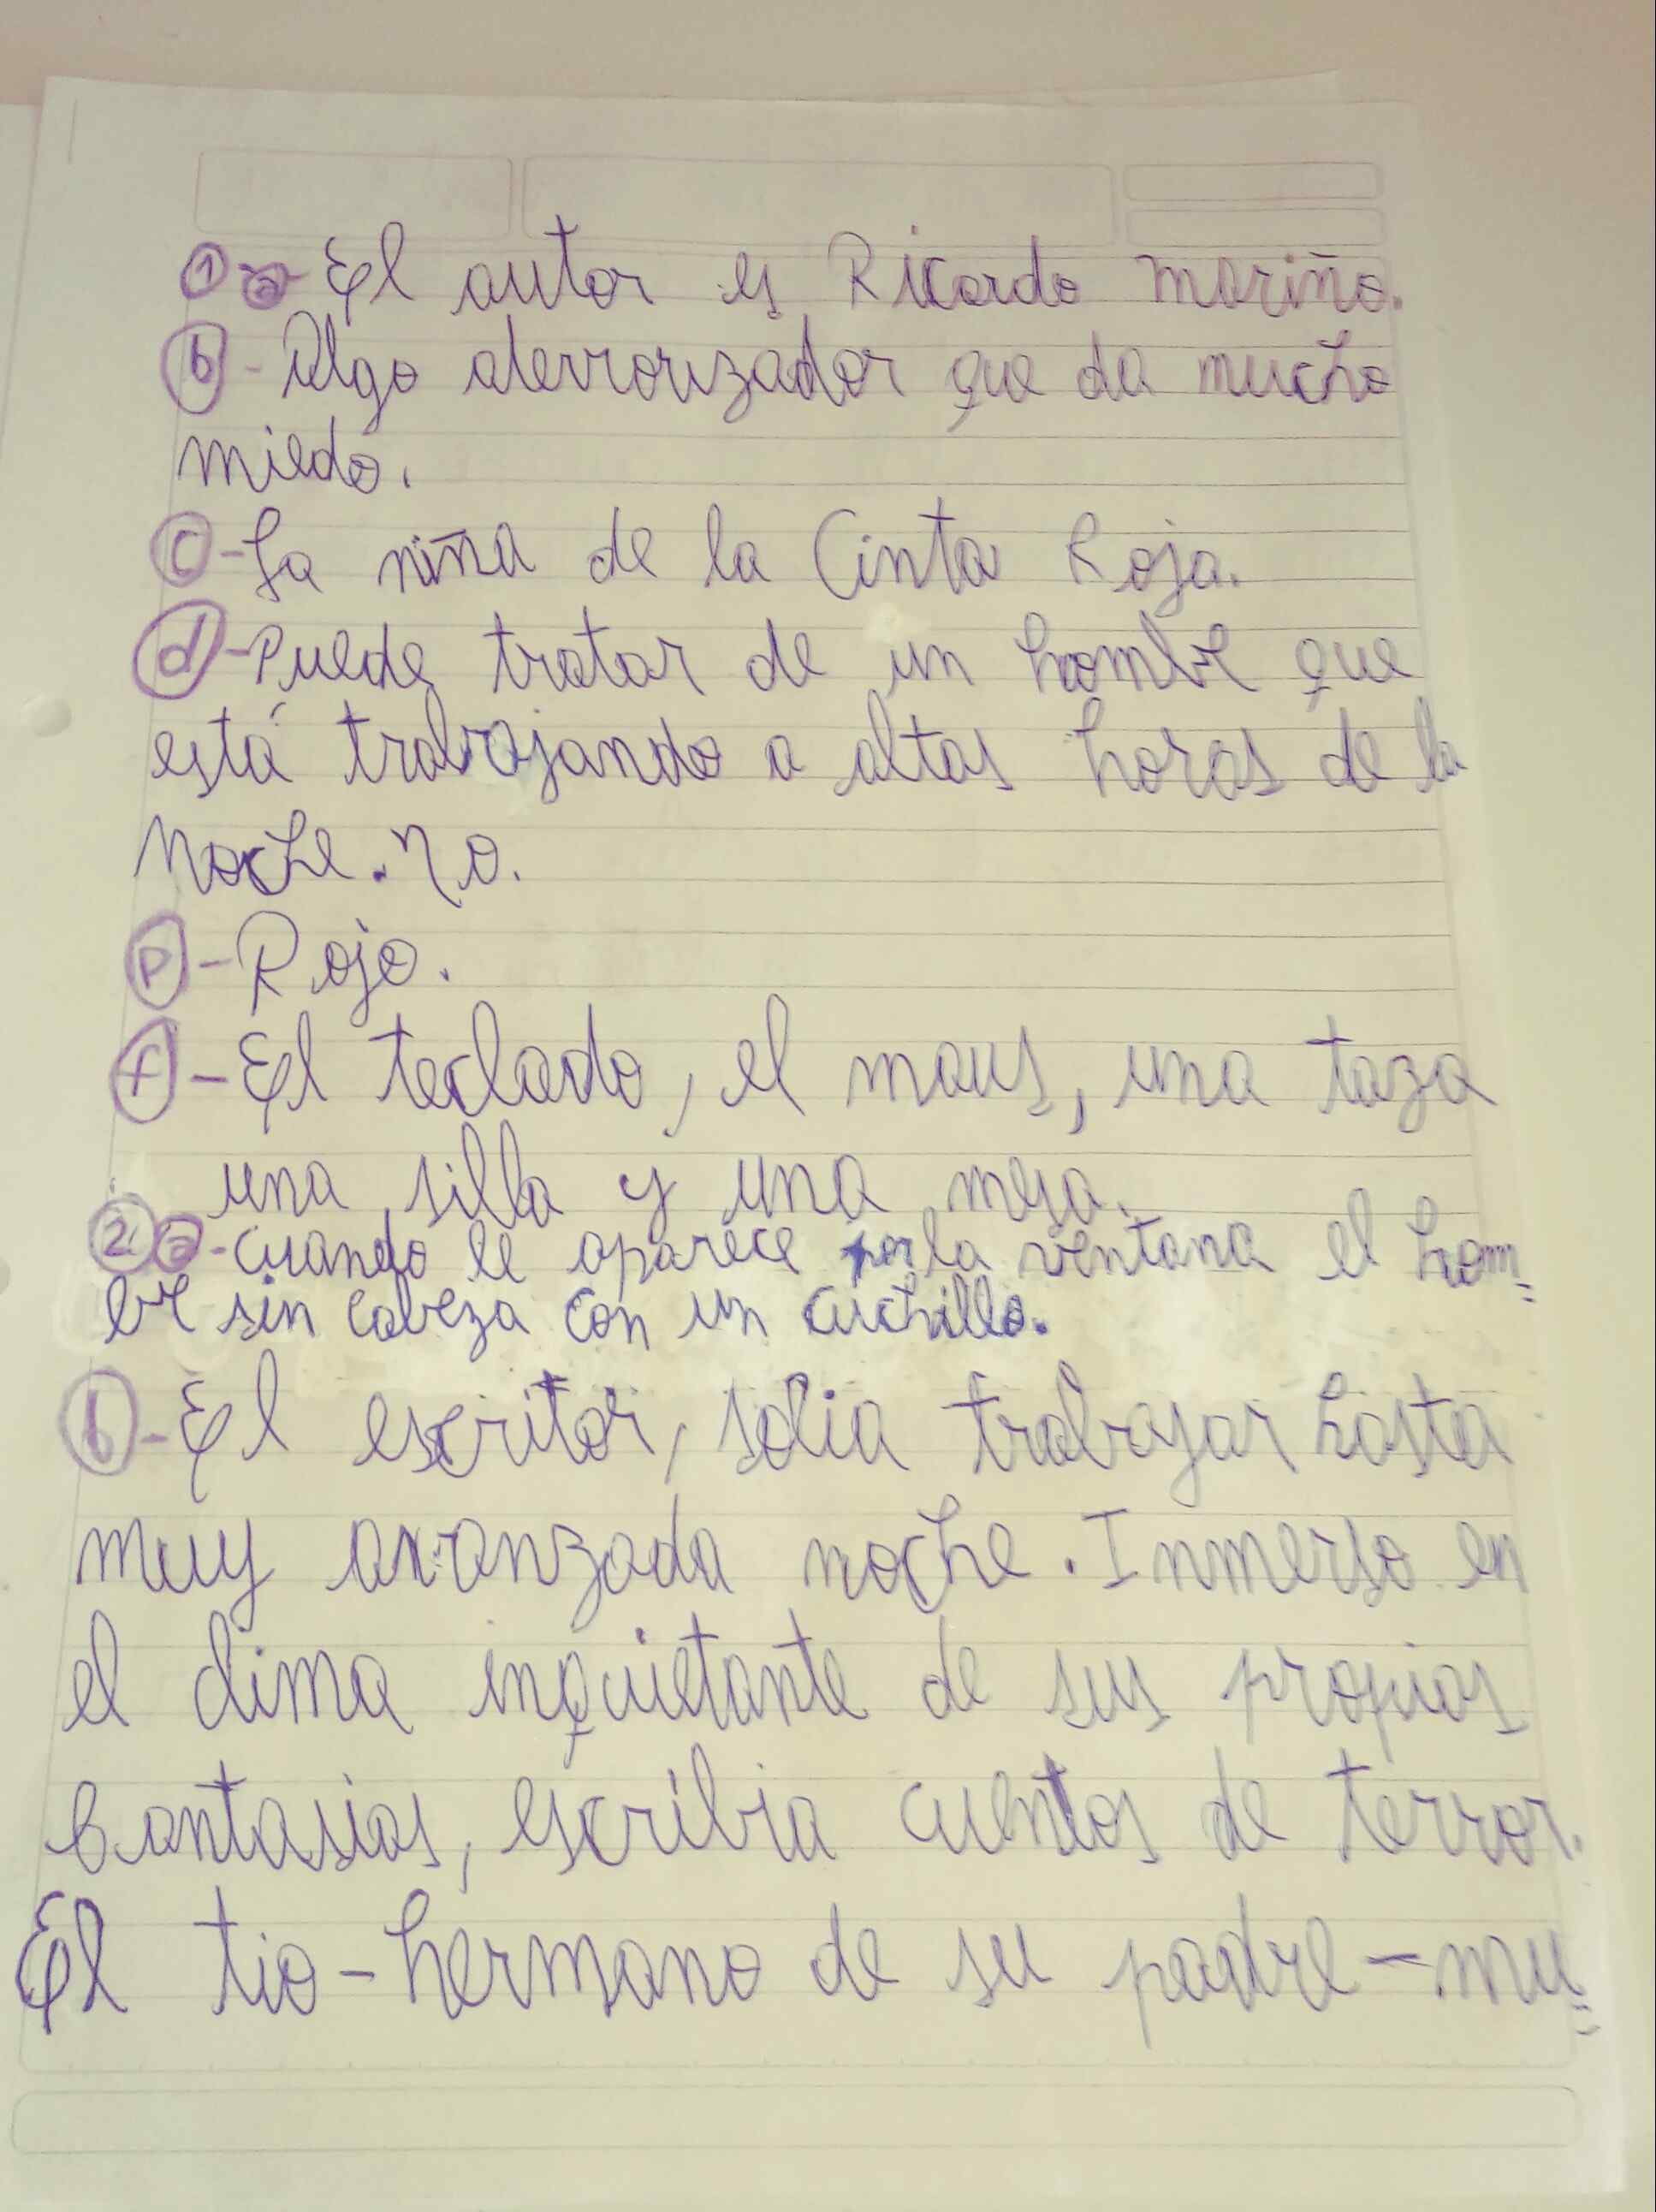 ① a- El autor es Ricardo mariño.
b - Algo aterrorizador que da mucho
miedo.
c - La niña de la Cinta Roja.
d - Puede tratar de un hombre que
está trabajando a altas horas de la
noche. no.
p - Rojo.
f - El teclado, el maus, una taza
una silla y una mesa.
② a - cuando le aparece por la ventana el hom=
bre sin cabeza con un cuchillo.
b - El escritor, solia trabajar hasta
muy avanzada noche. Inmerso en
el clima inquietante de sus propias
fantasias, escribia cuentos de terror.
El tio - hermano de su padre - mu=